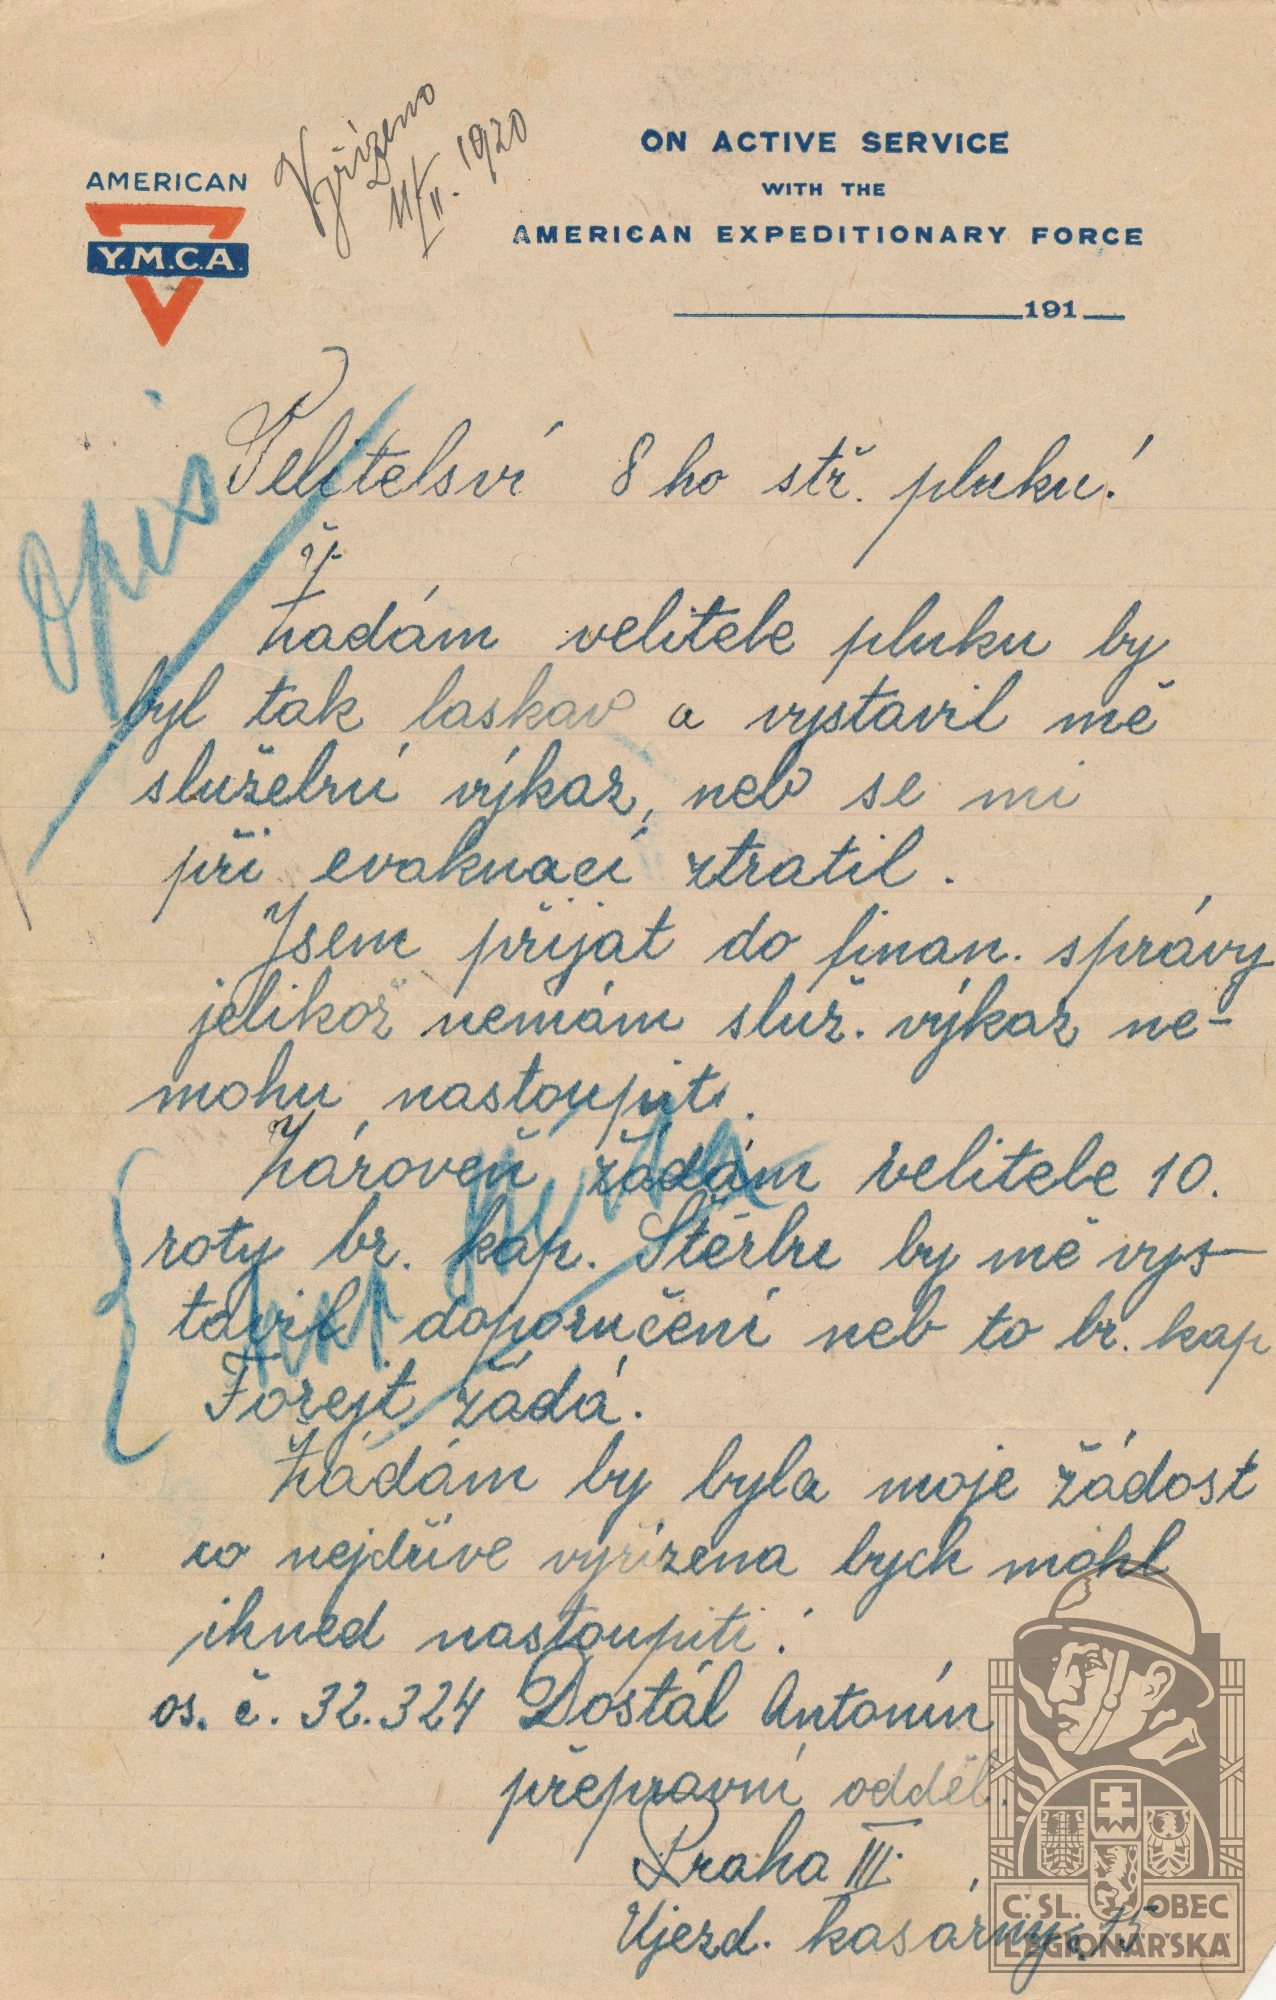 Vyřízeno
11/II. 1920
ON ACTIVE SERVICE
WITH THE
AMERICAN EXPEDITIONARY FORCE
AMERICAN
Y.M.C.A.
191
Opis
Velitelsví 8 ho stř. pluku!
Žadám velitele pluku by
byl tak laskav a vystavil mě
služební výkaz, neb se mi
při evakuací ztratil.
Jsem přijat do finan. správy
jelikož nemám služ. výkaz ne-
mohu nastoupiti.
Zároveň žádám velitele 10.
roty br. kap. Štěrbu by mě vys-
tavil doporučení neb to br. kap
Forejt žádá.
Žádám by byla moje žádost
co nejdříve vyřízena bych mohl
ihned nastoupiti.
os. č. 32.324 Dostál Antonín
přepravní odděl.
Praha III.
Ujezd. kasárny
Č. SL. OBEC
LEGIONÁŘSKÁ